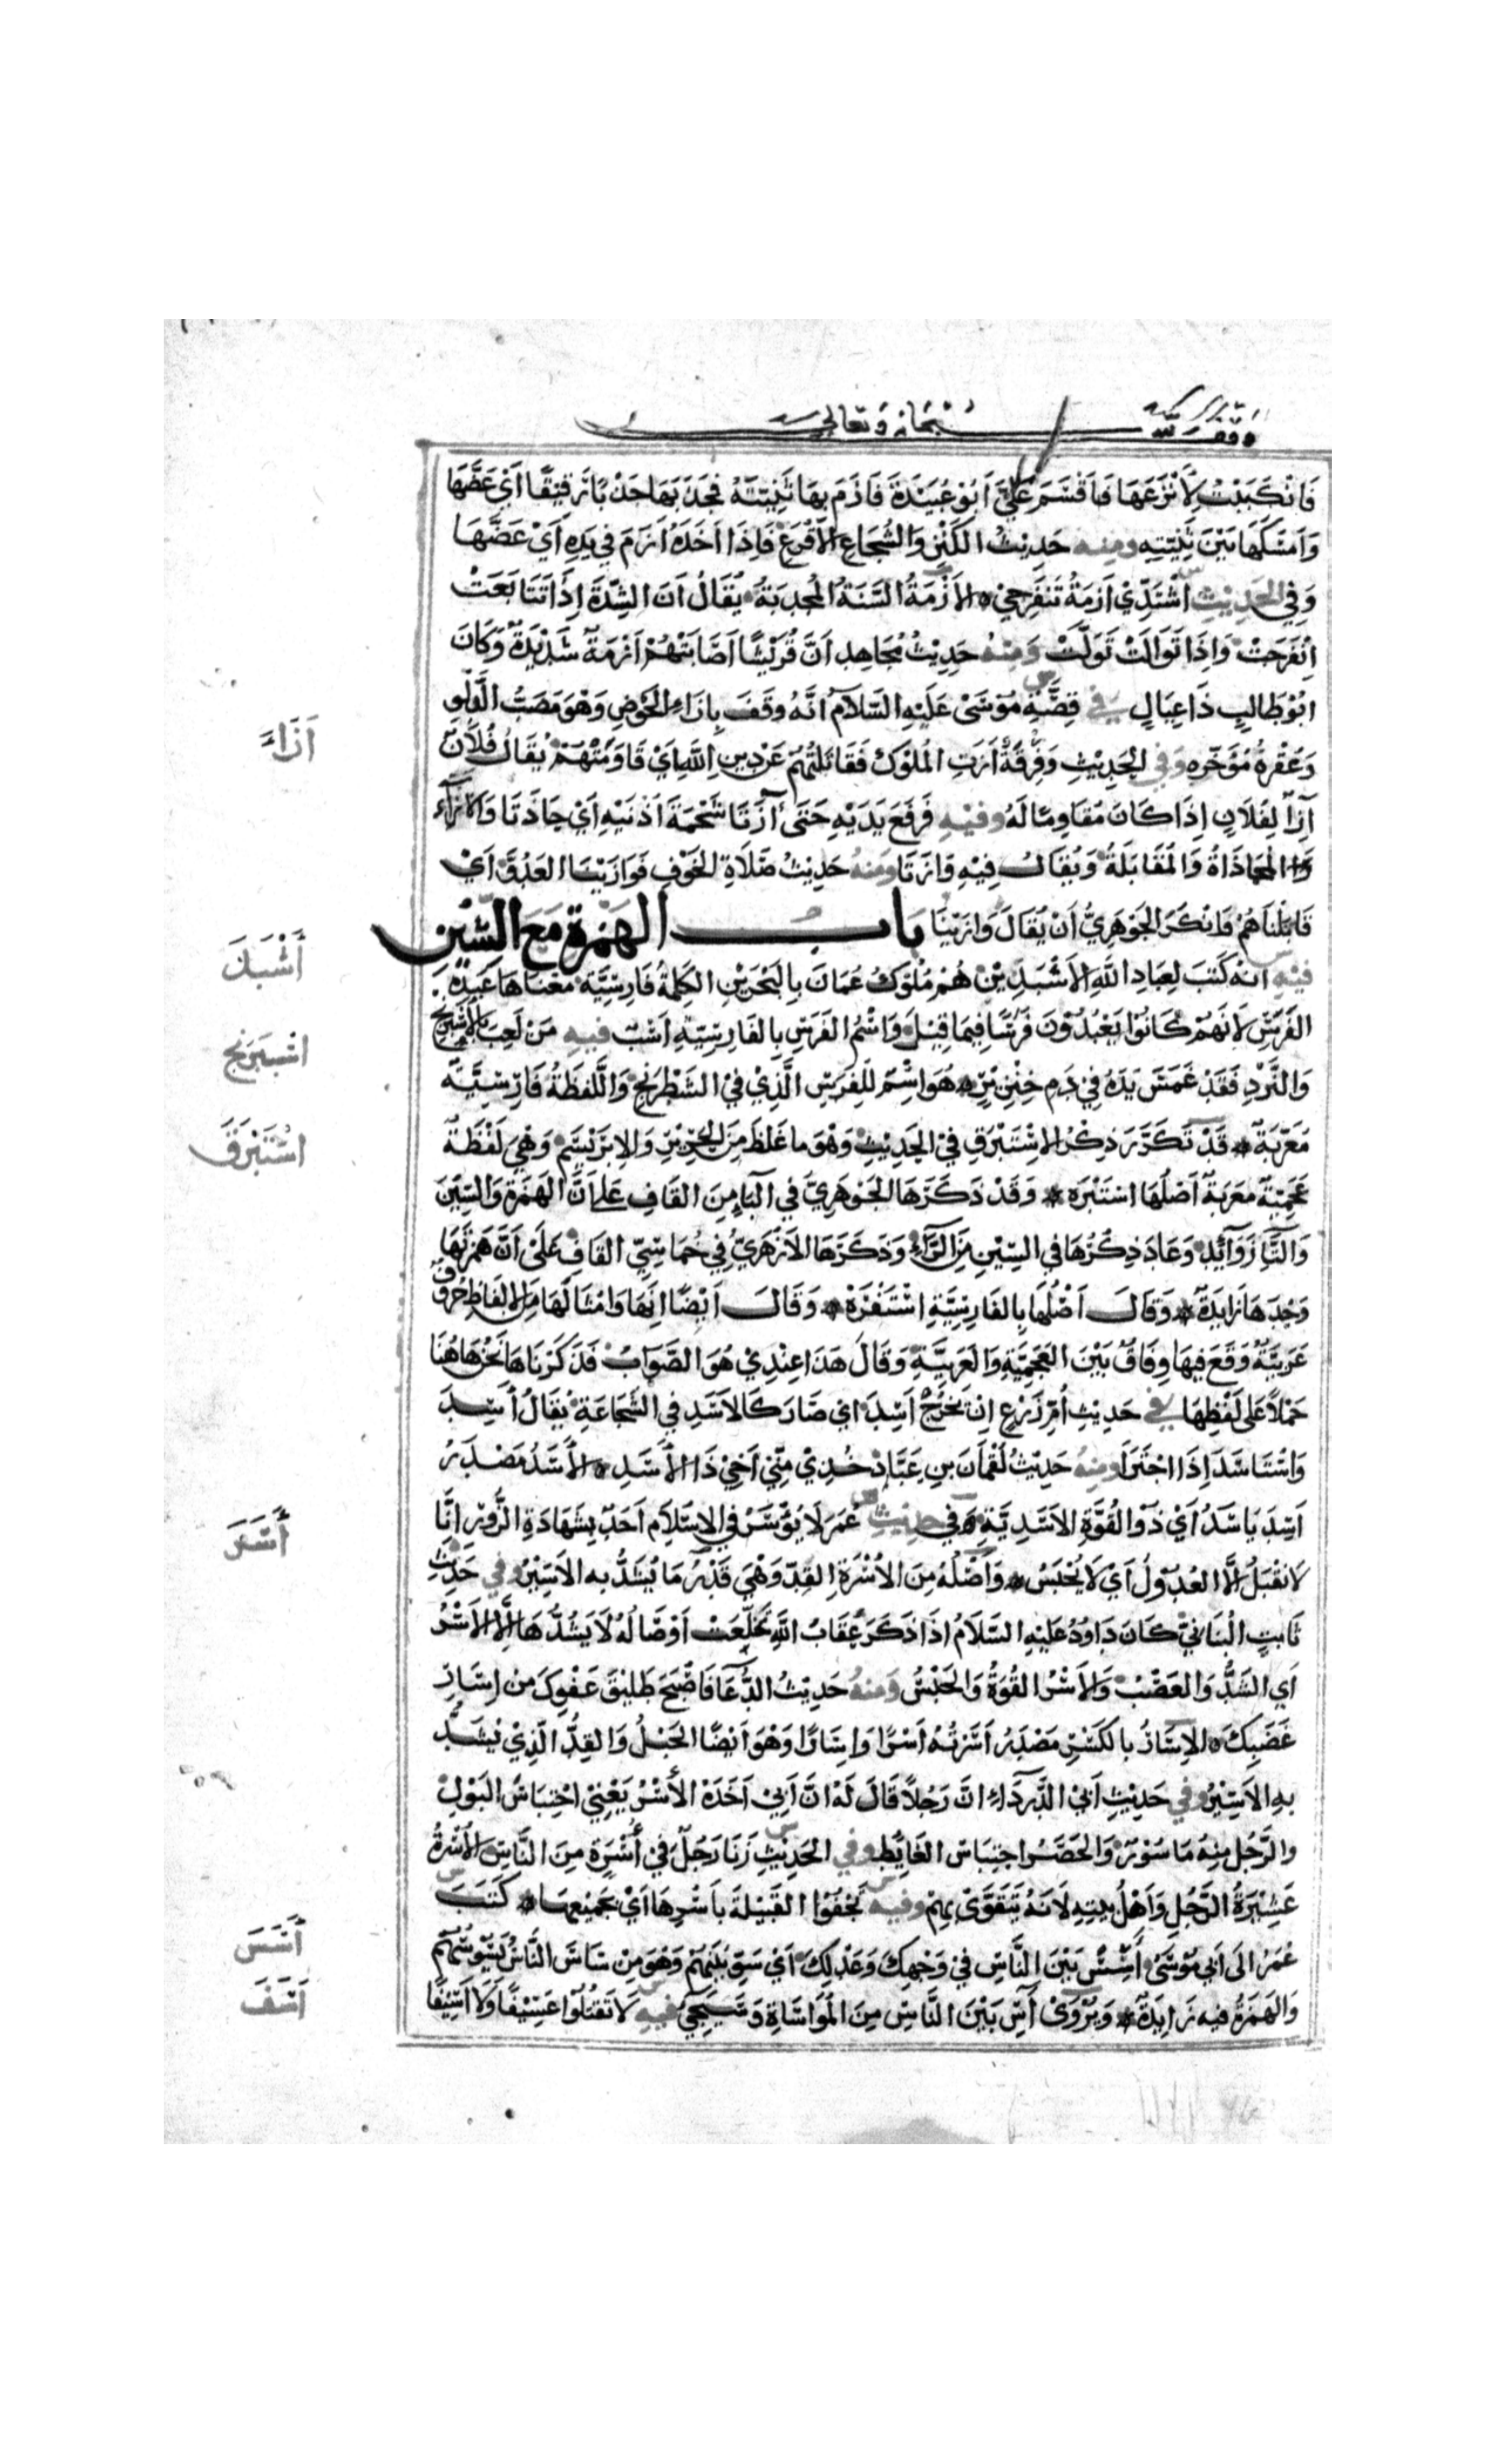 وقف لله سبحانه وتعالى
فَانْكَبَبْتُ لِأَنْزَعَهَا فَأَقْسَمَ عَلَيَّ اَبُوْ عُبَيْدَةَ فَاَزَمَ بِهَا ثَنِيَّتَهُ فَجَذَبَهَا جَذْبًا رَقِيْقًا اَيْ عَضَّهَا
وَاَمْسَكَهَا بَيْنَ ثَنِيَّتَيْهِ وَمِنْهُ حَدِيْثُ الكَنْزِ وَالشُّجَاعِ الأَقْرَعِ فَاِذَا اَخَذَهُ اَزَمَ فِي يَدِهِ اَيْ عَضَّهَا
وَفِي الحَدِيْثِ اشْتَدِّيْ اَزْمَةُ تَنْفَرِجِيْ الاَزْمَةُ السَّنَةُ المُجْدِبَةُ يُقَالُ اَنَ الشِّدَّةَ اِذَا تَتَابَعَتْ
اِنْفَرَجَتْ وَاِذَا تَوَالَتْ تَوَلَّتْ وَمِنْهُ حَدِيْثُ مُجَاهِدٍ اَنَّ قُرَيْشًا اَصَابَتْهُمْ اَزْمَةٌ شَدِيْدَةٌ وَكَانَ
ابُوْ طَالِبٍ ذَا عِيَالٍ فِي قِصَّةِ مُوْسَى عَلَيْهِ السَّلَامُ انَّهُ وَقَفَ بِاِزَاءِ الحَوْضِ وَهْوَ مَصَبُّ الدَّلْوِ
وَعُقْرُهُ مُؤَخَّرُهِ وَفِي الحَدِيْثِ وَفِرْقَةٌ اَزَتِ المُلُوْكَ فَقَاتَلَتْهُمْ عَنْ دِيْنِ اللهِ اَيْ قَاوَمَتْهُمْ يُقَالُ فُلَانٌ
اَزَاءٌ لِفُلَانٍ اِذَا كَانَ مُقَاوِمًا لَهُ وَفِيْهِ فَرَفَعَ يَدَيْهِ حَتَى اَزَتَا شَحْمَةَ اُذُنَيْهِ اَيْ حَاذَتَا وَالاِزَاءُ
المُحَاذَاةُ وَالمُقَابَلَةُ وَيُقَالُ فِيْهِ وَازَتَا وَمِنْهُ حَدِيْثُ صَلَاةِ الخَوْفِ فَوَازَيْنَا العَدُوَّ اَيْ
قَابَلْنَاهُمْ وَانْكَرَ الجَوْهَرِيُّ اَنْ يُقَالَ وَازَيْنَا بَابُ الهَمْزَةِ مَعَ السِّيْنِ
فِيْهِ انَّهُ كَتَبَ لِعِبَادِ اللهِ الاَسْبَذِيْنَ هُمْ مُلُوْكُ عُمَانَ بِالبَحْرَيْنِ الكَلِمَةُ فَارِسِيَّةٌ مَعْنَاهَا عَبَدَةُ
الفَرَسِ لِاَنَهُمْ كَانُوْا يَعْبُدُوْنَ فَرَسًا فِيْمَا قِيْلَ وَاسْمُ الفَرَسِ بِالفَارِسِيَّةِ اَسْبُ فِيهِ مَنْ لَعِبَ بِالاِسْبِرَنْجِ
وَالنَّرْدِ فَقَدْ غَمَسَ يَدَهُ فِيْ دَمِ خِنْزِيْرٍ هُوَ اسْمٌ لِلْفَرَسِ الَّذِيْ فِيْ الشَّطْرَنْجِ وَاللَّفْظَةُ فَارِسِيَّةٌ
مُعَرَّبَةٌ قَدْ تَكَرَّرَ ذِكْرُ الاِسْتَبْرَقِ فِيْ الحَدِيْثِ وَهْوَ مَا غَلُظَ مِنَ الحَرِيْرِ وَالاِبْرَيْسَمِ وَهْيَ لَفْظَةٌ
عَجَمِيَّةٌ مُعَرَّبَةٌ اَصْلُهَا اسْتَبْرَه وَقَدْ ذَكَرَهَا الجَوْهَرِيُّ فِي البَاءِ مِنَ القَافِ عَلَى اَنَّ الهَمْزَةَ وَالسِّيْنَ
وَالتَّاءَ زَوَائِدُ وَعَادَ ذِكْرُهَا فِي السِّيْنِ مِنَ الرَّاءِ وَذَكَرَهَا الاَزْهَرِيُّ فِي خُمَاسِيِّ القَافِ عَلَى اَنَّ هَمْزَتَهَا
وَحْدَهَا زَايِدَةٌ وَقَالَ اَصْلُهَا بِالفَارِسِيَّةِ اسْتَفْرَهْ وَقَالَ اَيْضًا اِنَّهَا وَامْثَالَهَا مِنَ الاَلْفَاظِ حُرُوْفٌ
عَرَبِيَّةٌ وَقَعَ فِيْهَا وِفَاقٌ بَيْنَ العَجَمِيَّةِ وَالعَرَبِيَّةِ وَقَالَ هَذَا عِنْدِيْ هُوَ الصَّوَابُ فَذَكَرْنَاهَا نَحْنُ هَاهُنَا
حَمْلاً عَلَى لَفْظِهَا فِي حَدِيْثِ اُمِّ زَرْعٍ اِنْ خَرَجَ اَسِدَ اي صَارَ كَالاَسَدِ فِي الشَّجَاعَةِ يُقَالُ اَسِدَ
وَاسْتَاسَدَ اِذَا اجْتَرَأَ وَمِنْهُ حَدِيْثُ لُقْمَانَ بنِ عَادٍ خُذِيْ مِنِّي اَخِيْ ذَا الأَسَدِ الأَسَدُ مَصْدَرُ
اَسِدَ يَاسَدُ اَيْ ذُوْ القُوَّةِ الاَسَدِيَّةِ وَفِي حَدِيْثِ عُمَرَ لَا يُؤْسَرُ فِي الاِسْلَامِ اَحَدٌ بِشَهَادَةِ الزُّوْرِ اِنَّا
لَا نَقْبَلُ اِلَّا العُدُوْلَ اَيْ لَا يُحْبَسُ وَاَصْلُهُ مِنَ الاُسْرَةِ القِدِّ وَهْيَ قَدْرُ مَا يُشَدُّ بِهِ الاَسِيْرُ وَفِي حَدِيْثِ
ثَابِتٍ البُنَانِيِّ كَانَ دَاوُدُ عَلَيْهِ السَّلَامُ اِذَا ذَكَرَ عِقَابَ اللهِ تَخَلَّعَتْ اَوْصَالُهُ لَا يَشُدُّهَا اِلَّا الاَسْرُ
اَيِ الشَّدُّ وَالعَصْبُ وَالاَسْرُ القُوَّةُ وَالحَبْسُ وَمِنْهُ حَدِيْثُ الدُّعَاءِ فَاَصْبَحَ طَلِيْقَ عَفْوِكَ مِنْ اِسَارِ
غَضَبِكَ الاِسَارُ بِالكَسْرِ مَصْدَرُ اَسَرْتُهُ اَسْرًا وَاِسَارًا وَهْوَ اَيْضًا الحَبْلُ وَالقِدُّ الَّذِيْ يُشَدُّ
بِهِ الاَسِيْرُ وَفِي حَدِيْثِ اَبِيْ الدَّرْدَاءِ انَّ رَجُلاً قَالَ لَهُ انَّ اَبِيْ اَخَذَهُ الأُسْرُ يَعْنِيْ احْتِبَاسَ البَوْلِ
والرَّجُلُ مِنْهُ مَاسُوْرٌ وَالحَصَرُ احْتِبَاسُ الغَايِطِ وَفِي الحَدِيْثِ زَنَا رَجُلٌ فِيْ أُسْرَةٍ مِنَ النَّاسِ الاُسْرَةُ
عَشِيْرَةُ الرَّجُلِ وَاَهْلُ بَيْتِهِ لِاَنَهُ يَتَقَوَّى بِهِمْ وَفِيْهِ تَجْفُوْا القَبِيْلَةَ بِاَسْرِهَا اَيْ جَمِيْعِهَا كَتَبَ
عُمَرُ اِلَى اَبِيْ مُوْسَى أَسِّسْ بَيْنَ النَّاسِ فِيْ وَجْهِكَ وَعَدْلِكَ اَيْ سَوِّ بَيْنَهُمْ وَهْوَ مِنْ سَاسَ النَّاسَ يَسُوْسُهُمْ
وَالهَمْزَةُ فِيْهِ زَايِدَةٌ وَيُرْوَى اٰسِ بَيْنَ النَّاسِ مِنَ المُوَاسَاةِ وَسَيَجِيْءُ فِيْهِ لَا تَقْتُلُوْا عَسِيْفًا وَلَا اَسِيْفًا
اَزَاءَ
أَسْبَذَ
اسْبَرَنْج
اسْتَبْرَقَ
أَسَرَ
أَسَسَ
اَسَفَ